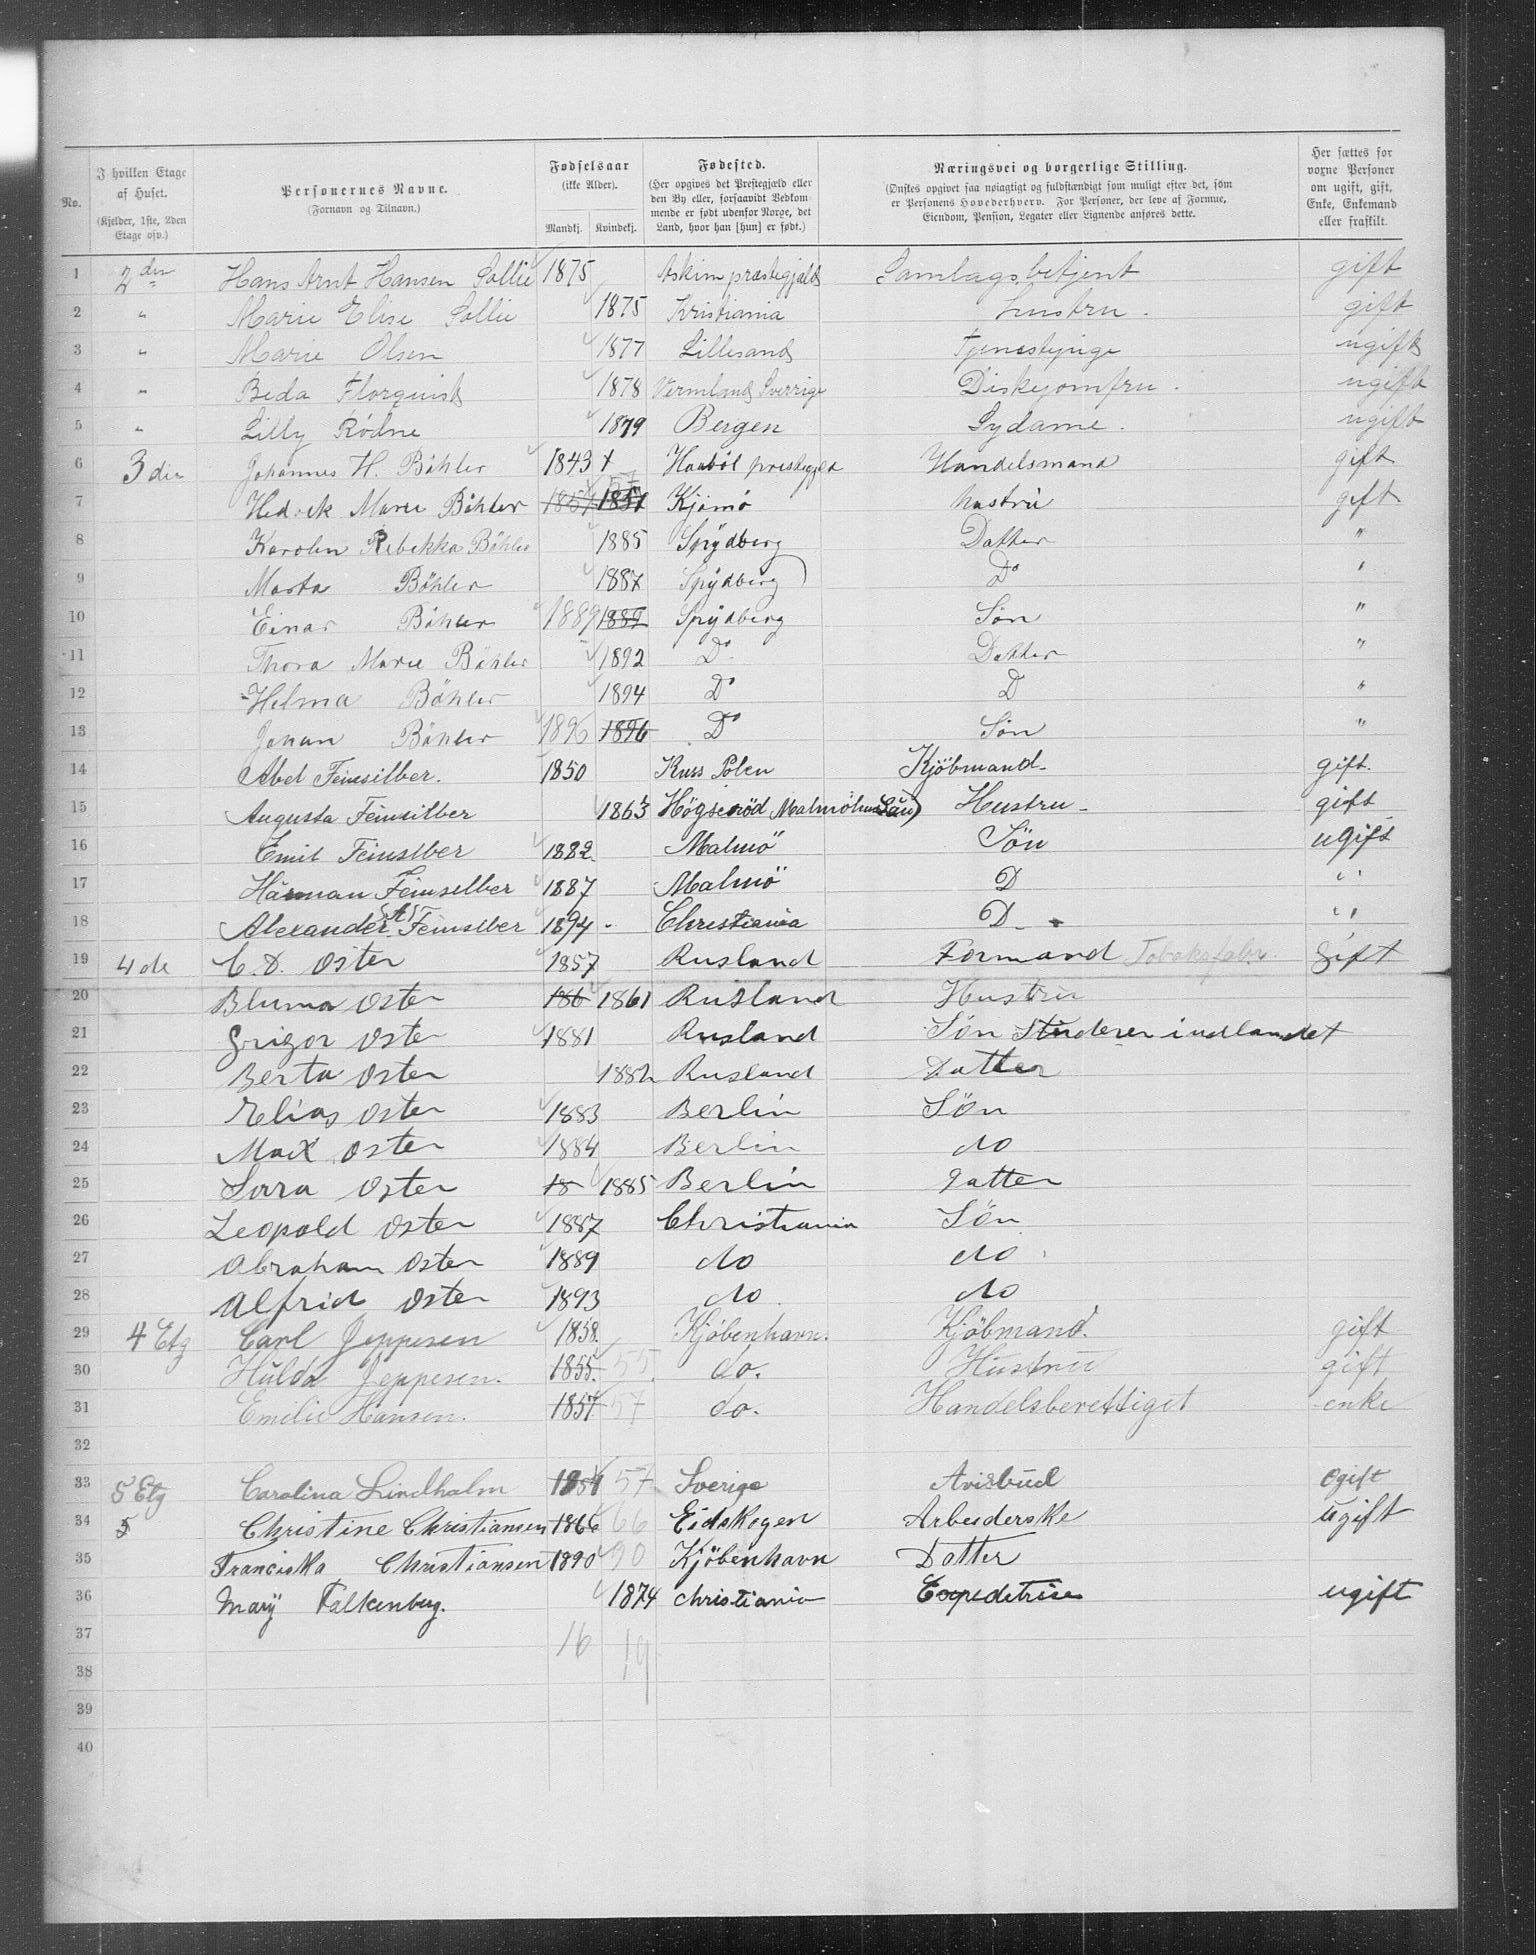 No. I hvilken Etage af Huset. (Kjelder, 1ste, 2den Etage osv.) Personernes Navne. (Fornavn og Tilnavn.) Fødselsaar (ikke Alder). Mandkj. Kvindekj. Fødested. (Her opgives det Prestegjæld eller den By eller, forsaavidt Vedkommende er født udenfor Norge, det Land, hvor han [hun] er født.) Næringsvei og borgerlige Stilling. (Ønskes opgivet saa nøiagtigt og fuldstændigt som muligt efter det, som er Personens Hovederhverv. For Personer, der leve af Formue, Eiendom, Pension, Legater eller Lignende anføres dette. Her sættes for voxne Personer om ugift, gift, Enke, Enkemand eller fraskilt.
1 2den Hans Arnt Hansen Sollie 1875 Askim præstegjæld Samlagsbetjent gift
2 " Marie Elise Sollie 1875 Kristiania Hustru. gift
3 " Marie Olsen 1877 Lillesand Tjenestepige ugift
4 " Beda Florquist 1878 Vermland Sverrige Diskejomfru. ugift
5 " Lilly Rødne 1879 Bergen Sydame. ugift
6 3die Johannes H. Böhler 1843 Haaböl prestegjeld Handelsmand gift
7 Marie Böhler 1857 1851 57 Kjømø hustru gift
8 Karolen Rebekka Böhler 1885 Spydberg Datter "
9 Marta Böhler 1887 Spydberg Do "
10 Einar Böhler 1889 1889 Spydberg Søn "
11 Thora Marie Böhler 1892 Do Datter "
12 Helma Böhler 1894 Do D "
13 Johan Böhler 1896 1896 Do Søn "
14 Abel Feinsilber. 1850 Russ Polen Kjöbmand. gift.
15 Augusta Feinsilber 1863 Malmöhus Län) Hustru - gift
16 Emil Feinsilber 1882. Malmö Sön ugift
17 Härman Feinsilber 1887 Malmö D "
18 Alexander (A) Feinsilber 1894 - Christiania D - "
19 4de C. D. Oster 1857 Rusland Formand Tobaksfabr. Gift
20 Bluma Oster 186 1861 Rusland Hustru
21 Grigor Oster 1881 Rusland Sön Studerer i udlandet
22 Berta Oster 1882 Rusland Datter
23 Elias Oster 1883 Berlin Sön
24 Max Oster 1884 Berlin do
25 Sara Oster 18 1885 Berlin Datter
26 Leopold Oster 1887 Christiania Sön
27 Abraham Oster 1889 do do
28 Alfrid Oster 1893 do do
29 4 Etg Carl Jeppesen 1858. Kjøbenhavn. Kjøbmand. gift
30 Hulda Jeppesen. 1855. 55. do. Hustru gift
31 Emilie Hansen. 1857 57 do. Handelsberettiget enke
32
33 5 Etg Carolina Lindholm 57 Sverige Avisbud Ogift
34 5 Christine Christiansen 1866 66 Eidskogen Arbeiderske Ugift
35 Franciska Christiansen 1890 90 Kjöbenhavn Datter
36 Mary Falkenberg. 1874 Christiania Expeditrise ugift
37 16 19
38
39
40